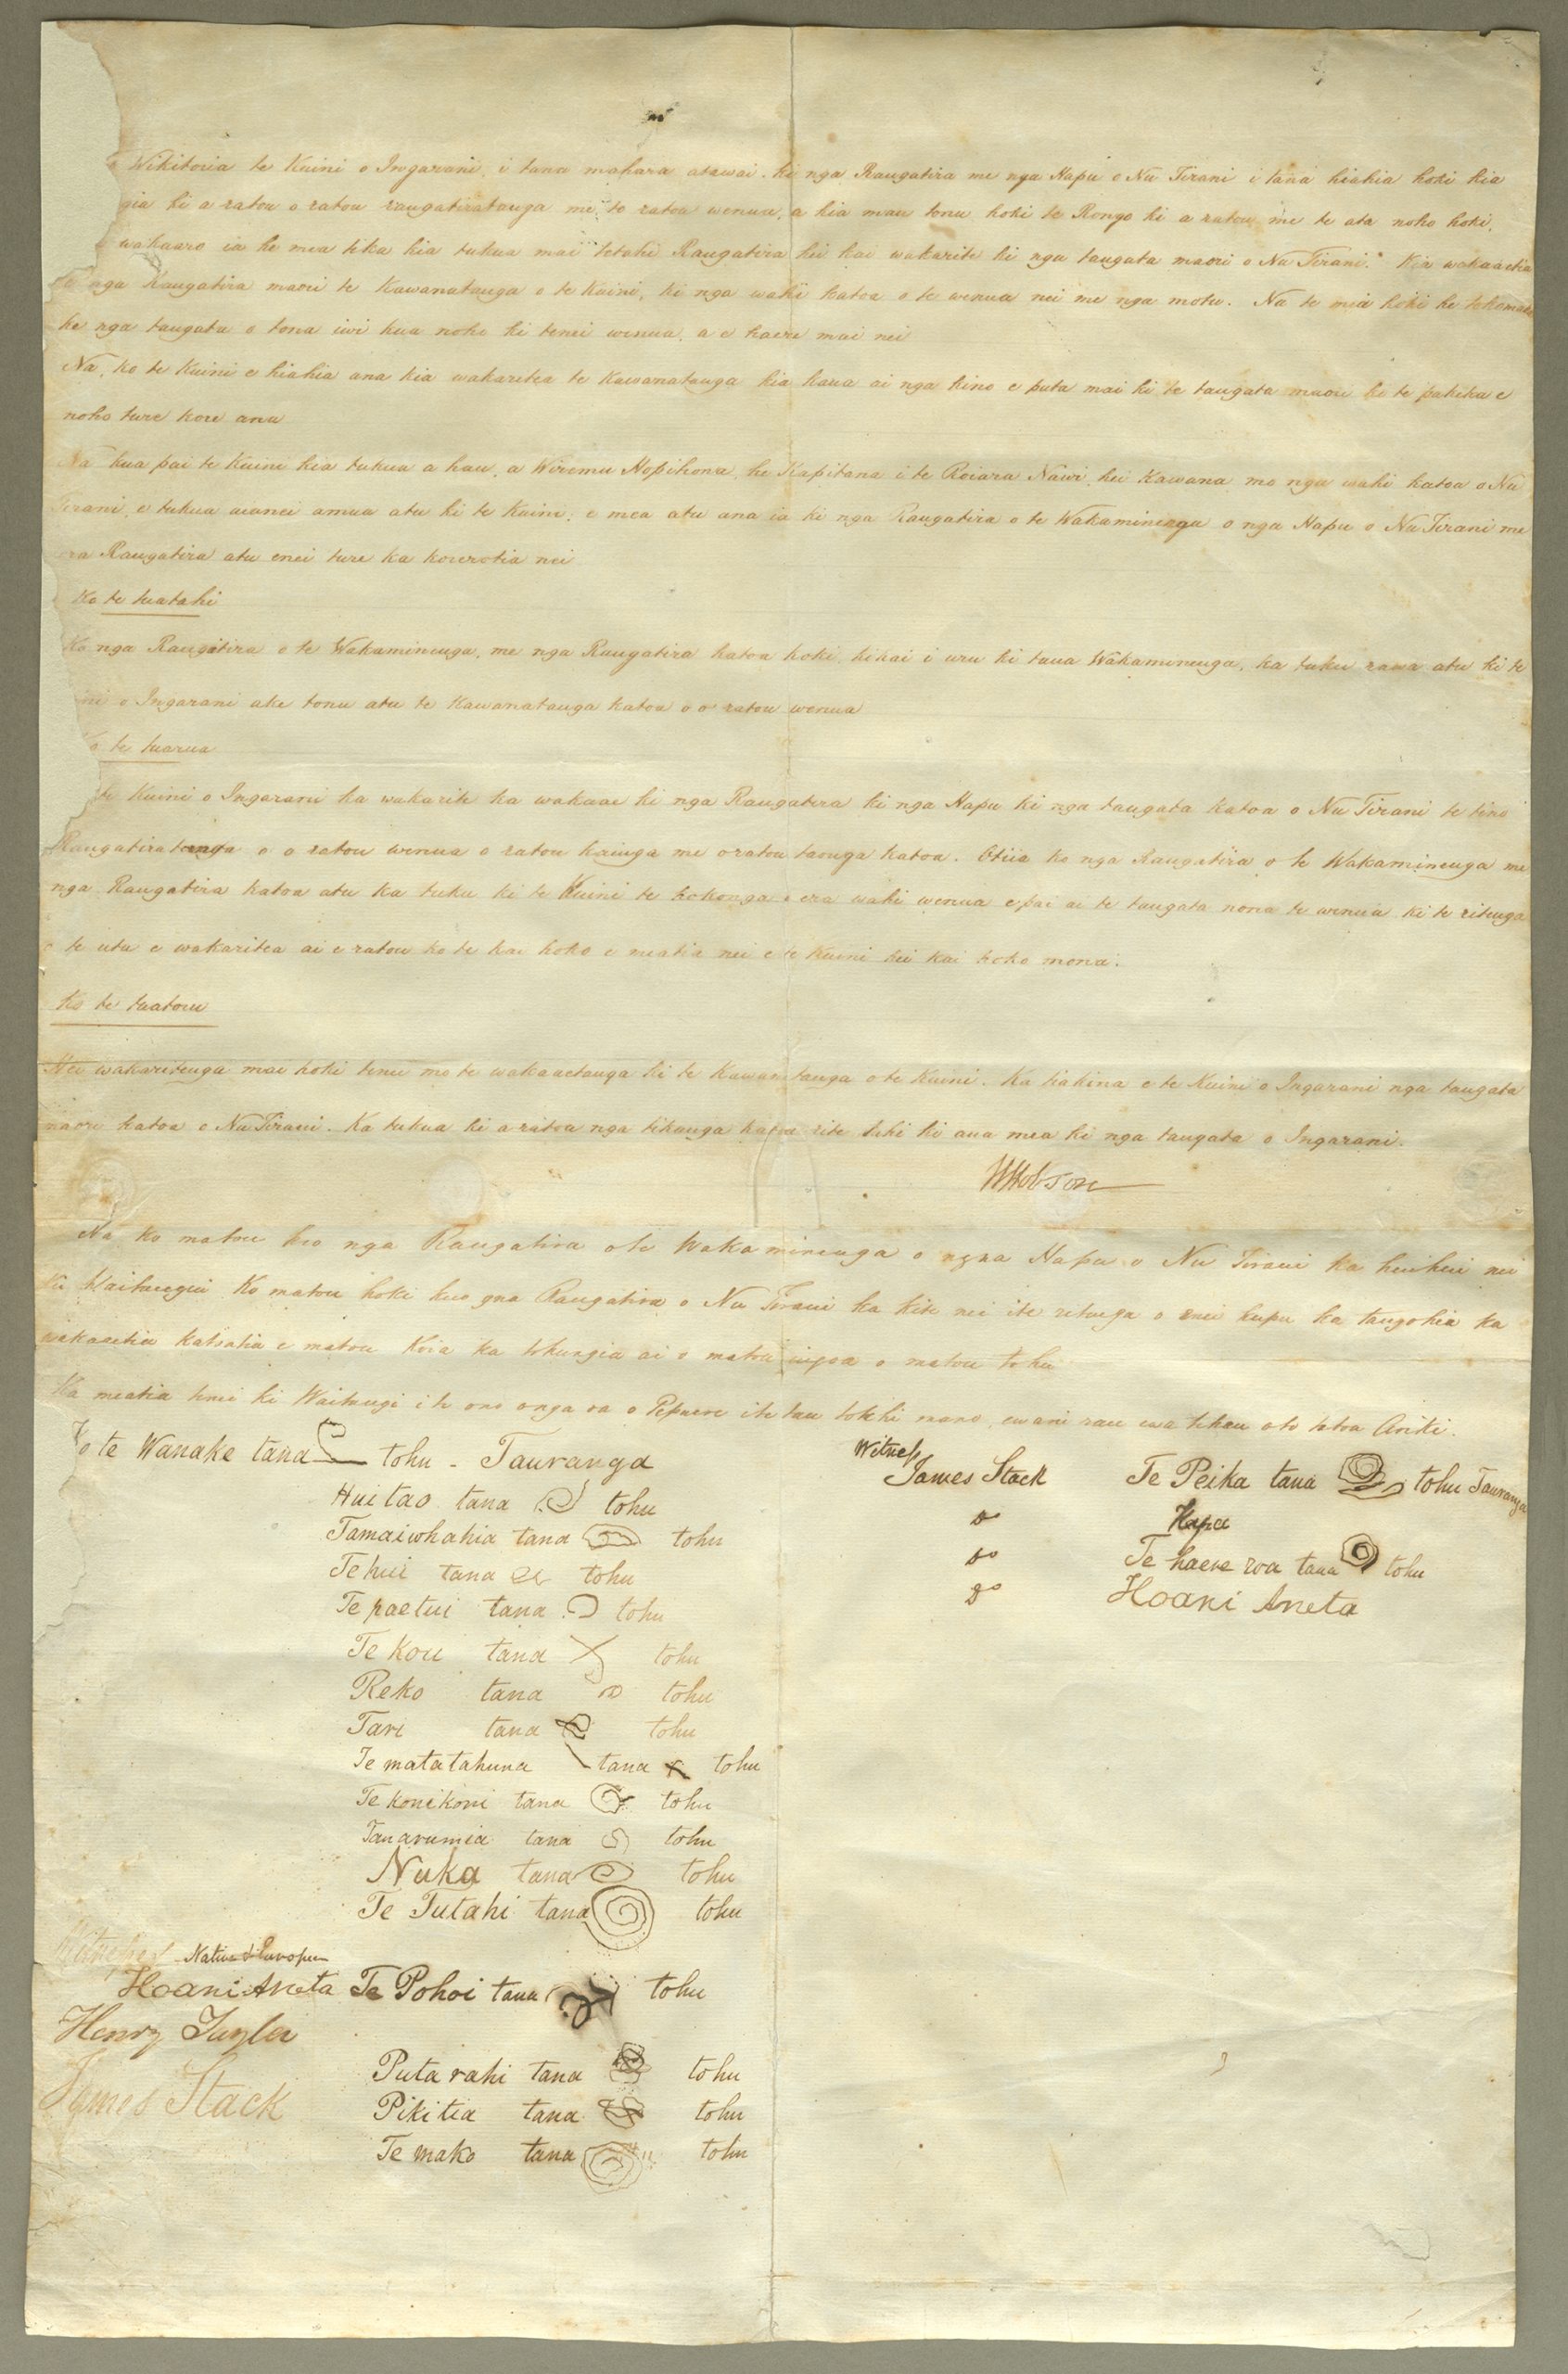 Wikitoria te Kuini o Ingarani, i tana mahara atawai ki nga Rangatira me nga Hapu o Nu Tirani i tana hiahia hoki kia
ki a ratou o ratou rangatiratanga me to ratou wenua, a kia mau tonu hoki te Rongo ki a ratou me te ata noho hoki,
wakaaro ia he mea tika kia tukua mai tetahi Rangatira hei kai wakarite ki nga tangata maori o Nu Tirani. Kia wakaaetia
nga Rangatira maori te Kawanatanga o te Kuini, ki nga wahi katoa o te wenua nei me nga motu. Na te mea hoki he tokomaha
ke nga tangata o tona iwi kua noho ki tenei wenua, a e haere mai nei
Na, ko te Kuini e hiahia ana kia wakaritea te Kawanatanga kia kaua ai nga kino e puta mai ki te tangata maori ki te pakeha e
noho ture kore ana
Na kua pai te Kuini kia tukua a hau, a Wiremu Hopihona, he Kapitana i te Roiara Nawi, hei Kawana mo nga wahi katoa o Nu
Tirani, e tukua aianei amua atu ki te Kuini; e mea atu ana ia ki nga Rangatira o te Wakaminenga o nga Hapu o Nu Tirani me
era Rangatira atu enei ture ka korerotia nei
Ko te tuatahi
Ko nga Rangatira o te Wakaminenga, me nga Rangatira katoa hoki, kihai i uru ki taua Wakaminenga, ka tuku rawa atu ki te
o Ingarani ake tonu atu te Kawanatanga katoa o o ratou wenua
te tuarua
te Kuini o Ingarani ka wakarite ka wakaae ki nga Rangatira ki nga Hapu ki nga tangata katoa o Nu Tirani te tino
Rangatiratanga o o ratou wenua o ratou kainga me o ratou taonga katoa. Otiia ko nga Rangatira o te Wakaminenga me
nga Rangatira katoa atu ka tuku ki te Kuini te hokonga o era wahi wenua e pai ai te tangata nona te wenua ki te ritenga
o te utu e wakaritea ai e ratou ko te kai hoko e meatia nei e te Kuini hei kai hoko mona.
Ko te tuatoru
Hei wakaritenga mai hoki tenei mo te wakaaetanga ki te Kawanatanga o te Kuini. Ka tiakina e te Kuini o Ingarani nga tangata
maori katoa o Nu Tirani. Ka tukua ki a ratou nga tikanga katoa rite tahi ki ana mea ki nga tangata o Ingarani.
W Hobson
Na ko matou ko nga Rangatira o te Wakaminenga o nga Hapu o Nu Tirani ka huihui nei
ki Waitangi Ko matou hoki ko gna Rangatira o Nu Tirani ka kite nei i te ritenga o enei kupu ka tangohia ka
wakaaetia katoatia e matou Koia ka tohungia ai o matou ingoa o matou tohu
Ka meatia tenei ki Waitangi i te ono o nga ra o Pepuere i te tau kotahi mano, ewaru rau ewa tekau o to tatou Ariki.
Ko te Wanake tana tohu - Tauranga
Huitao tana tohu
Tamaiwhahia tana tohu
Te hui tana tohu
Te paetui tana tohu
Te Kou tana tohu
Reko tana tohu
Tari tana tohu
Te matatahuna tana tohu
Te konikoni tana tohu
Tauarumia tana tohu
Nuka tana tohu
Te Tutahi tana tohu
Witnesses Native & European
Hoani Aneta Te Pohoi tana tohu
Henry Tayler
Putarahi tana tohu
James Stack
Pikitia tana tohu
Te mako tana tohu
Witness
James Stack Te Peika tana tohu Tauranga
Do Kapa
Do Te haereroa tana tohu
Do Hoani Aneta